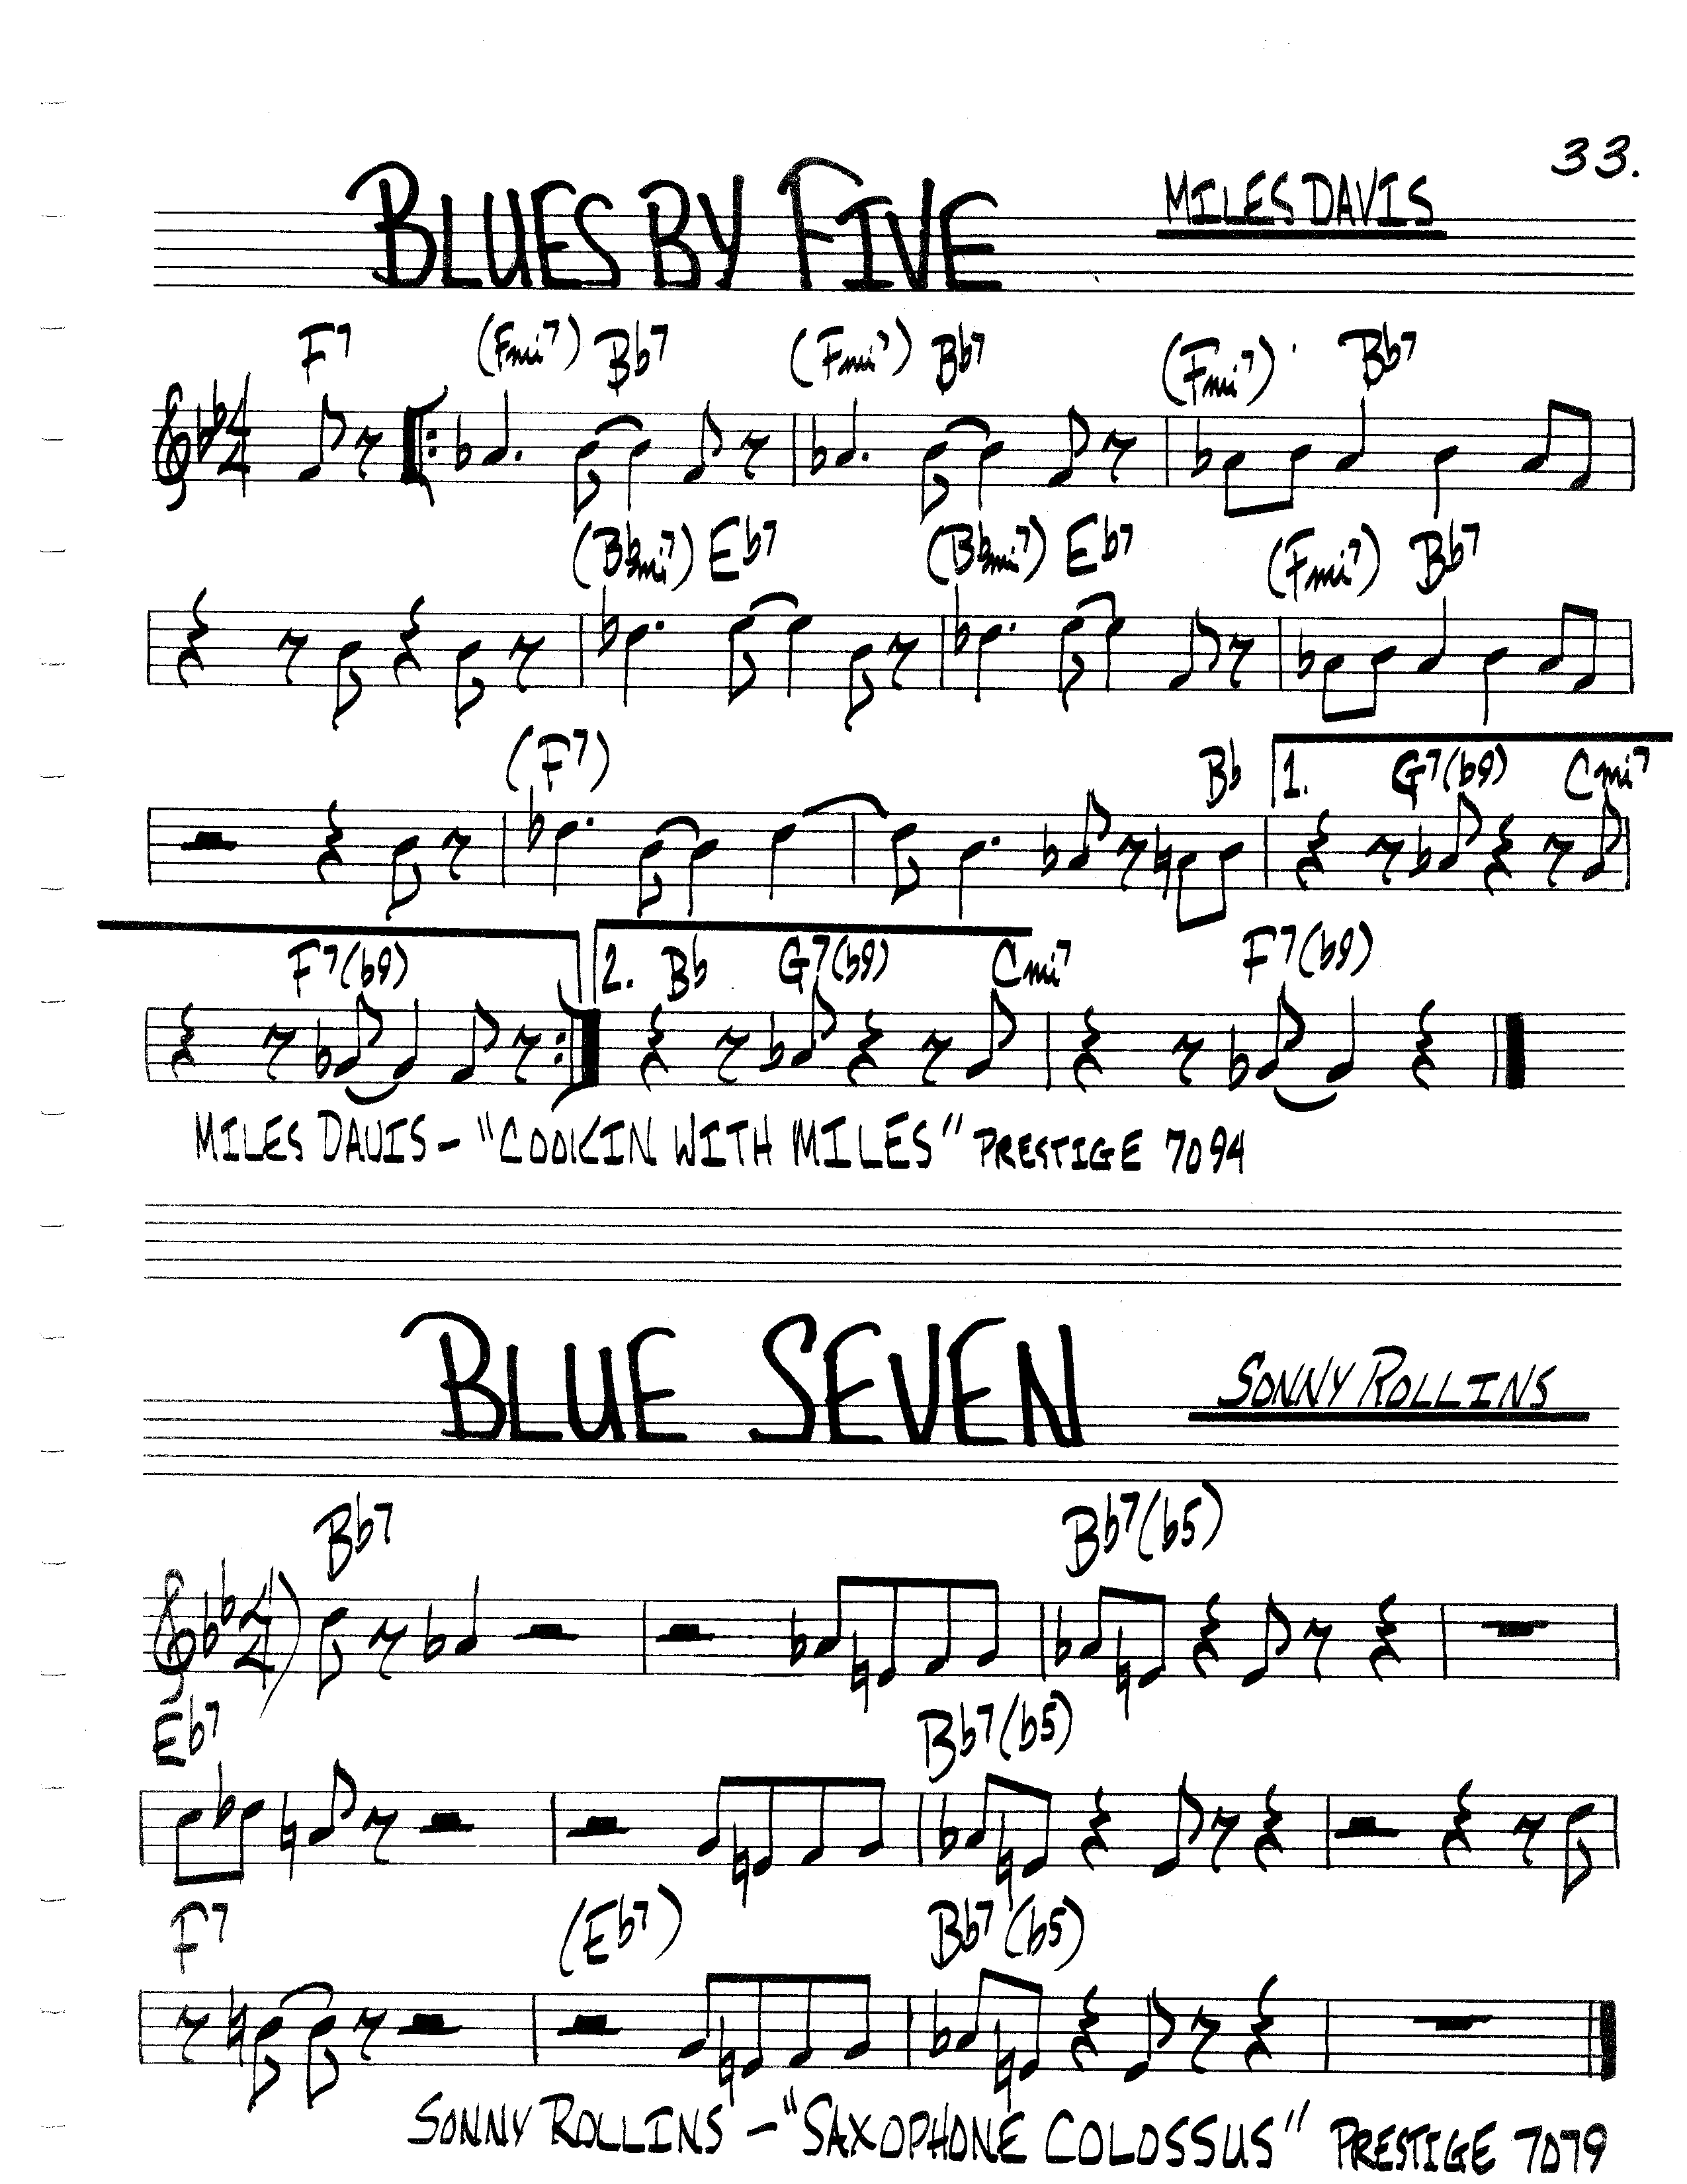 33.
BLUES BY FIVE MILES DAVIS
F7 (Fmi7) Bb7 (Fmi7) Bb7 (Fmi7) Bb7
4
4
(Bbmi7) Eb7 (Bbmi7) Eb7 (Fmi7) Bb7
(F7) Bb 1. G7(b9) Cmi7
F7(b9) 2. Bb G7(b9) Cmi7 F7(b9)
MILES DAVIS - "COOKIN WITH MILES" PRESTIGE 7094
BLUE SEVEN SONNY ROLLINS
Bb7 Bb7(b5)
4
4
Eb7 Bb7(b5)
F7 (Eb7) Bb7(b5)
SONNY ROLLINS - "SAXOPHONE COLOSSUS" PRESTIGE 7079